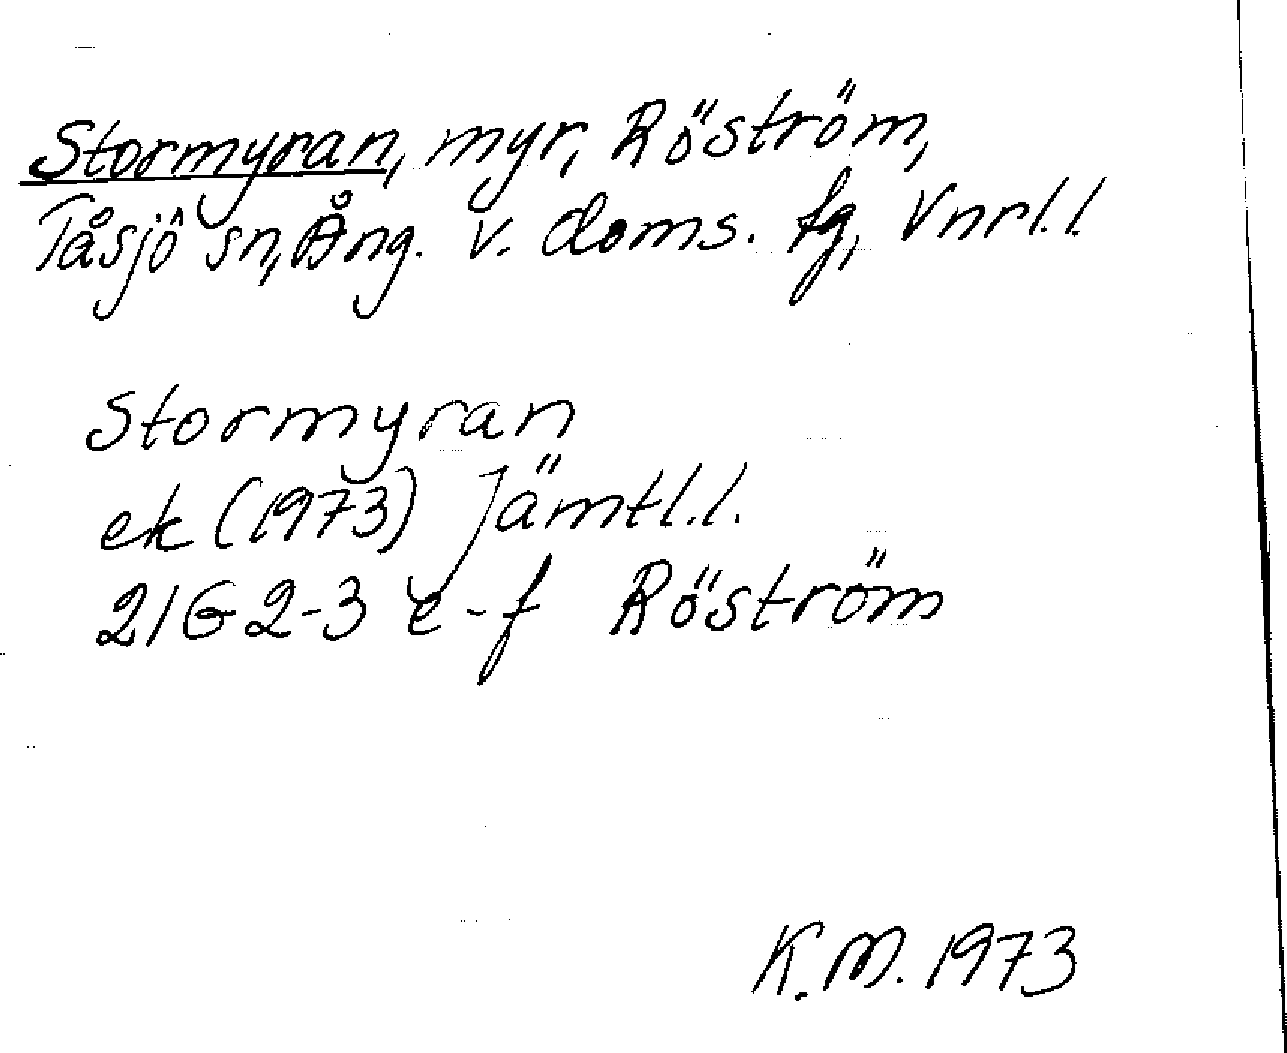 Stormyran, myr, Röström,
Tåsjö sn, Ång. v. doms. fg, Vnrl.l.
Stormyran
ek (1973) Jämtl.l.
21G 2-3 e-f Röström
K.M. 1973